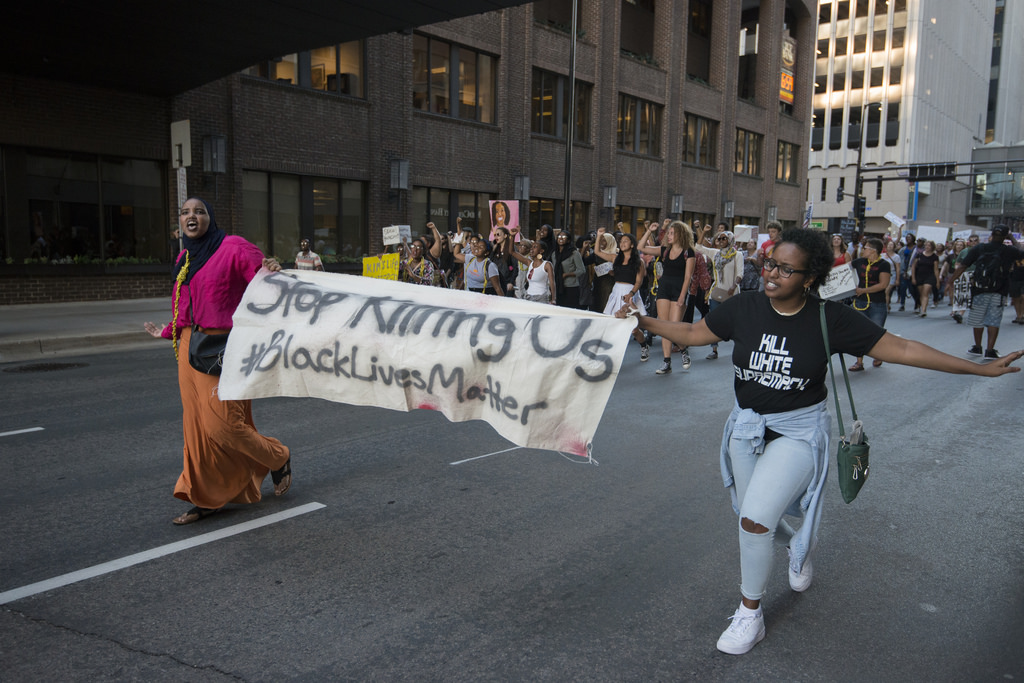 Stop Killing Us
#BlackLivesMatter
KILL
WHITE
SUPREMACY